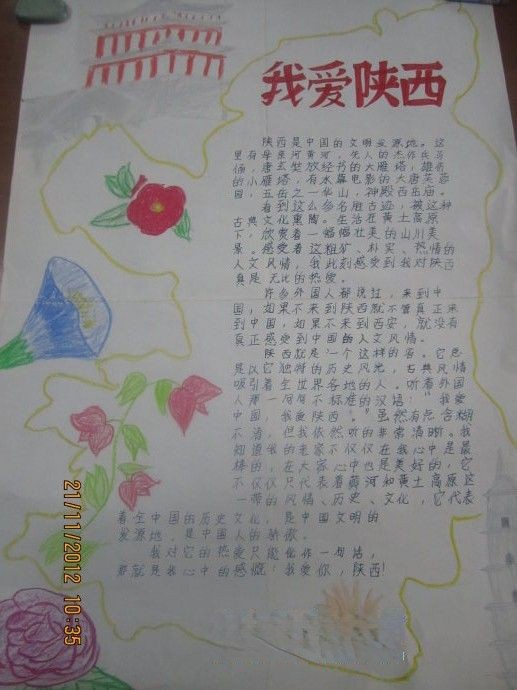 我爱陕西
陕西是中国的文明发源地。这
里有母亲河黄河,先人的杰作兵马
俑,唐玄奘放经书的大雁塔,雄奇
的小雁塔,有水幕电影的大唐芙蓉
园,五岳之一华山,神殿西岳庙。
看到这么多名胜古迹,被这种
古典文化熏陶。生活在黄土高原
下,欣赏着一幅幅壮美的山川美
景,感受着这粗犷、朴实、热情的
人文风情,我此刻感受到我对陕西
真是无比的热爱。
许多外国人都说过,来到中
国,如果不来到陕西就不管真正来
到中国,如果不来到西安,就没有
真正感受到中国的人文风情。
陕西就是一个这样的省。它总
是以它独特的历史风光,古典风情
吸引着全世界各地的人。听着外国
人那一句句不标准的汉语:“我爱
中国,我爱陕西”。虽然有点含糊
不清,但我依然听的非常清晰。我
知道我的老家不仅仅在我心中是最
棒的,在大家心中也是美好的,它
不仅仅只代表着黄河和黄土高原这
一带的风情、历史、文化,它代表
着全中国的历史文化,是中国文明的
发源地,是中国人的骄傲。
我对它的热爱只能化作一句话,
那就是我心中的感慨:我爱你,陕西!
21/11/2012 10:35